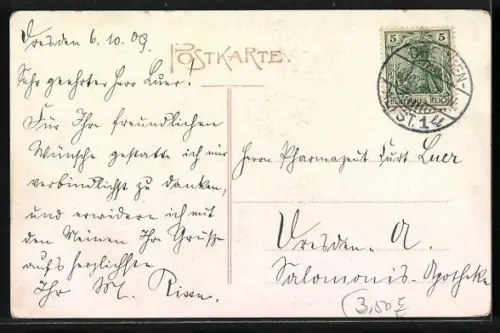 Dresden 6.10.09.
POSTKARTE.
Sehr geehrter Herr Luer!
Für Ihre freundlichen
Wünsche gestatte ich mir
verbindlichst zu danken,
und erwidere ich mit
den Meinen Ihre Grüße
aufs herzlichste
Ihr M.
5 5
DEUTSCHES REICH
ST. 14
Herrn Pharmazeut Curt Luer
Dresden. A.
Salomonis-Apotheke
3,50 £